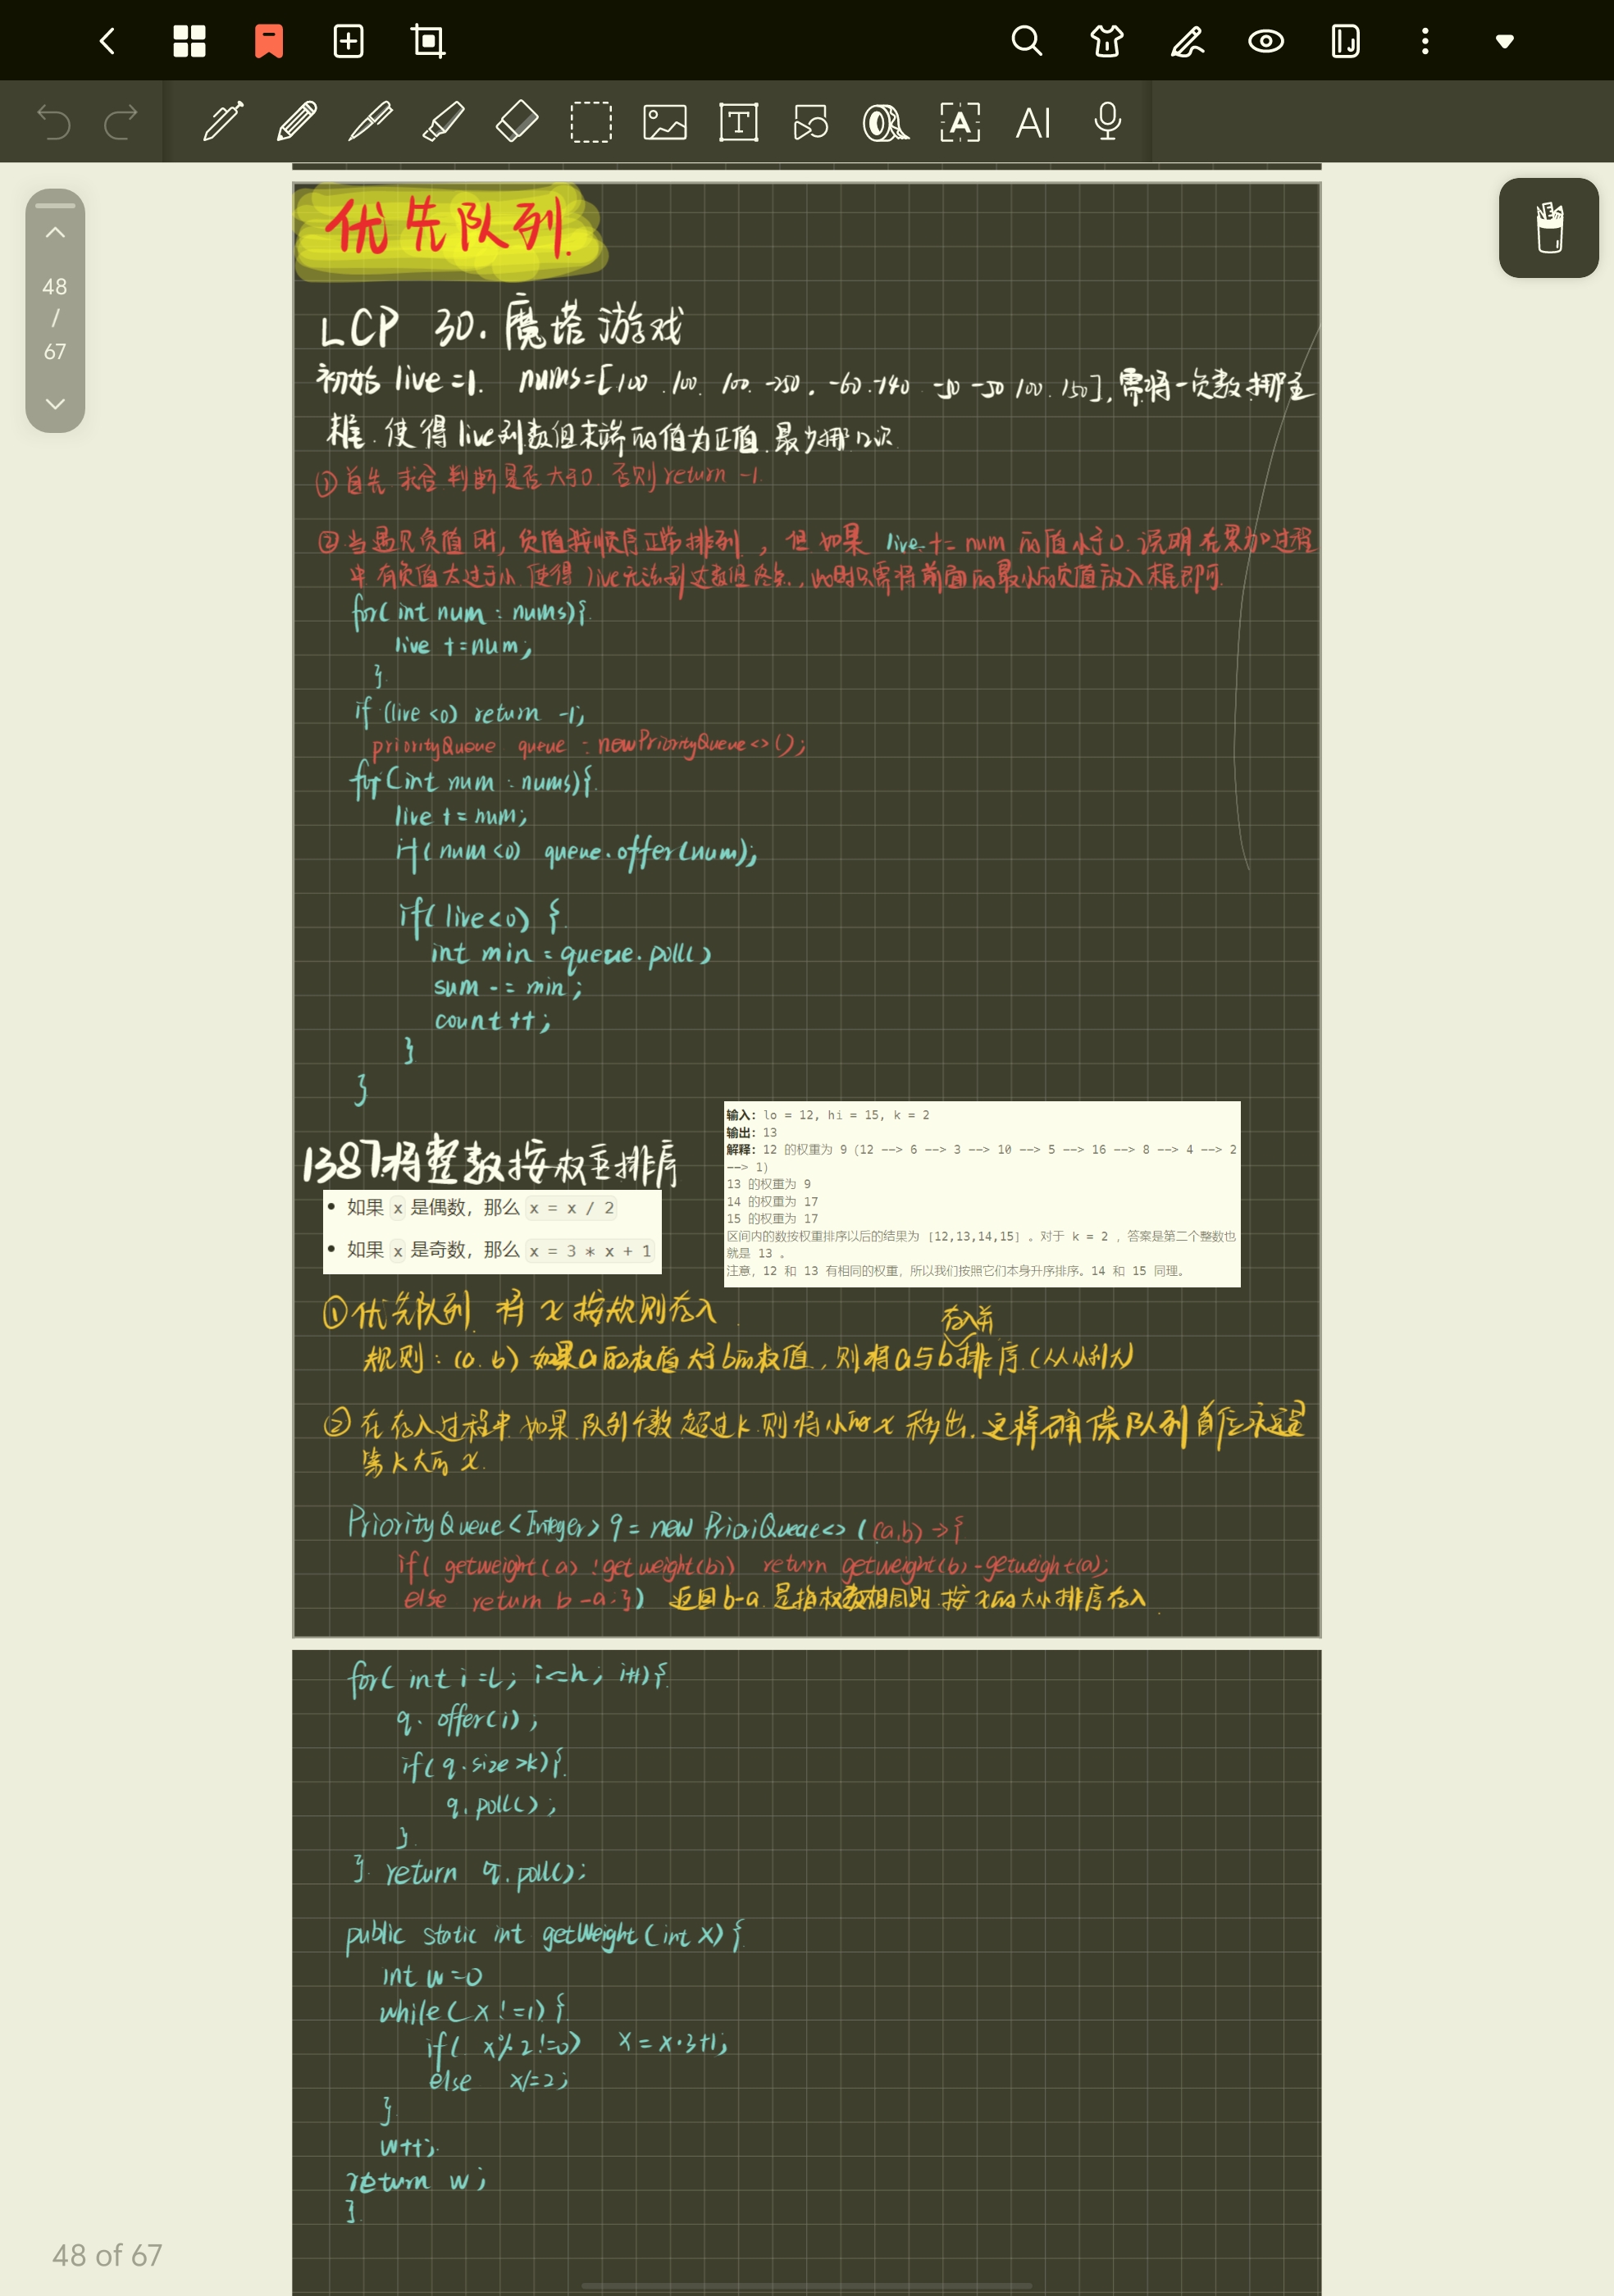 48
/
67
T
A
AI
优先队列.
LCP 30. 魔塔游戏
初始 live =1. nums=[100 .100. 100. -250. -60. -140. -50 -50 100. 150], 需将一负数挪至
框. 使得 live到数组末端的值为正值. 最少挪几次
①首先 求合 判断是否大于0 否则 return -1.
②当遇见负值时, 负值按顺序正常排列, 但如果 live += num 的值小于0. 说明在累加过程
中 有负值太过于小. 使得 live无法到达数组终点, 此时只需将前面的最小的负值放入框即可.
for( int num : nums){
live +=num;
}
if (live <0) return -1;
priorityQueue queue = new PriorityQueue<>();
for(int num : nums){
live += num;
if( num <0) queue.offer(num);
if( live<0) {
int min = queue.poll()
sum -= min;
count ++;
}
}
1387将整数按权重排序
输入: lo = 12, hi = 15, k = 2
输出: 13
解释: 12 的权重为 9 (12 --> 6 --> 3 --> 10 --> 5 --> 16 --> 8 --> 4 --> 2
--> 1)
13 的权重为 9
14 的权重为 17
15 的权重为 17
区间内的数按权重排序以后的结果为 [12,13,14,15] 。对于 k = 2 , 答案是第二个整数也
就是 13 。
注意, 12 和 13 有相同的权重, 所以我们按照它们本身升序排序。14 和 15 同理。
• 如果 x 是偶数, 那么 x = x / 2
• 如果 x 是奇数, 那么 x = 3 * x + 1
①优先队列. 将 x 按规则存入
存入并
规则: (a. b) 如果a的权值大于b的权值, 则将a与b排序.(从小到大)
② 在存入过程中 如果 队列个数 超过k. 则将小的x 移出. 这样确保队列首位永远是
第k大的 x.
PriorityQueue<Integer> q = new PrioriQueue<> ( (a,b) -> {
if( getweight(a) !getweight(b)) return getweight(b)-getweight(a);
else return b -a; }) 返回b-a. 是指权数相同时. 按x的大小排序存入.
for( int i =l; i<=h; i++){
q. offer(i);
if( q.size >k){
q. poll();
}
} return q.poll();
public static int getWeight (int x) {
int w=0
while( x !=1) {
if( x% 2 !=0) x = x·3+1;
else x/=2;
}
w++;
return w;
}
48 of 67